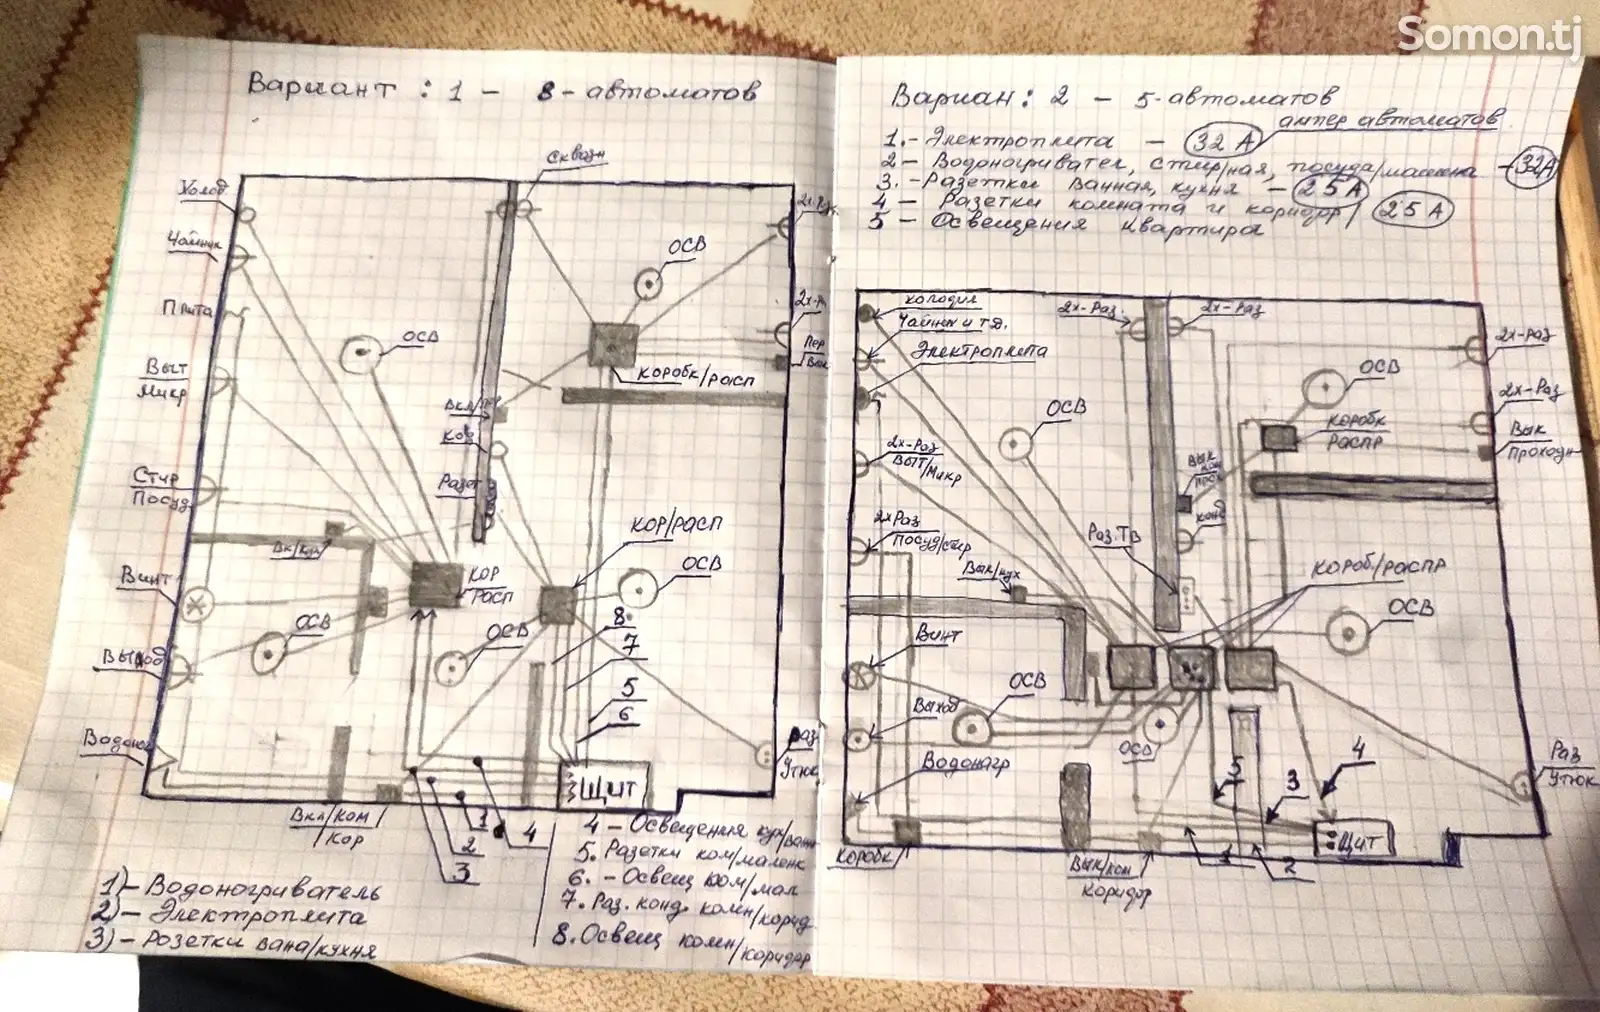 Somon.tj
Вариант : 1 - 8-автоматов
Сквазн
Холод
2х-Раз
Чайник
ОСВ
Плита
ОСВ
2х-Р
Пер
Вык
Выт
Микр
КОРОБК/РАСП
Вкл/пер
Кон
Розет
Стир
Посуд
КОР/РАСП
Вк/Кух
КОР
РАСП
ОСВ
Винт
ОСВ
ОСВ
8
7
Выход
5
6
Водонаг
Раз
Утюк
ЩИТ
Вкл/КОМ
КОР
1
2
3
4
1)-Водоногриватель
2)-Электроплита
3)-Розетки вана/кухня
4-Освещения кух/ванн
5. Разетки ком/маленк
6. - Освещ ком/мал
7. Раз. конд. комн/корид
8. Освещ комн/коридор
Вариан: 2 - 5-автоматов
ампер автоматов
1.-Электроплита - 32 А
2-Водоногривател, стир/ная, посуда/машена - 32А
3.-Разетки ванная, кухня - 25А
4-Разетки комната и коридор/ 25 А
5-Освещения квартира
холодил
2х-Раз.
2х-Раз
Чайник и т.д.
Электроплета
2х-Раз
ОСВ
ОСВ
2х-Раз
КОРОБК
РАСПР
Вык
Проходн
2х-Раз
ВЫТ/Микр
ВЫК
конд
2х Раз
Посуд/стир
Раз.ТВ
Вык/кух
КОРОБ/РАСПР
ОСВ
Винт
ОСВ
Выход
ОСВ
Водонагр
Раз
Утюк
5
3
4
ЩИТ
Коробк/
Вык/ком
Коридор
1
2